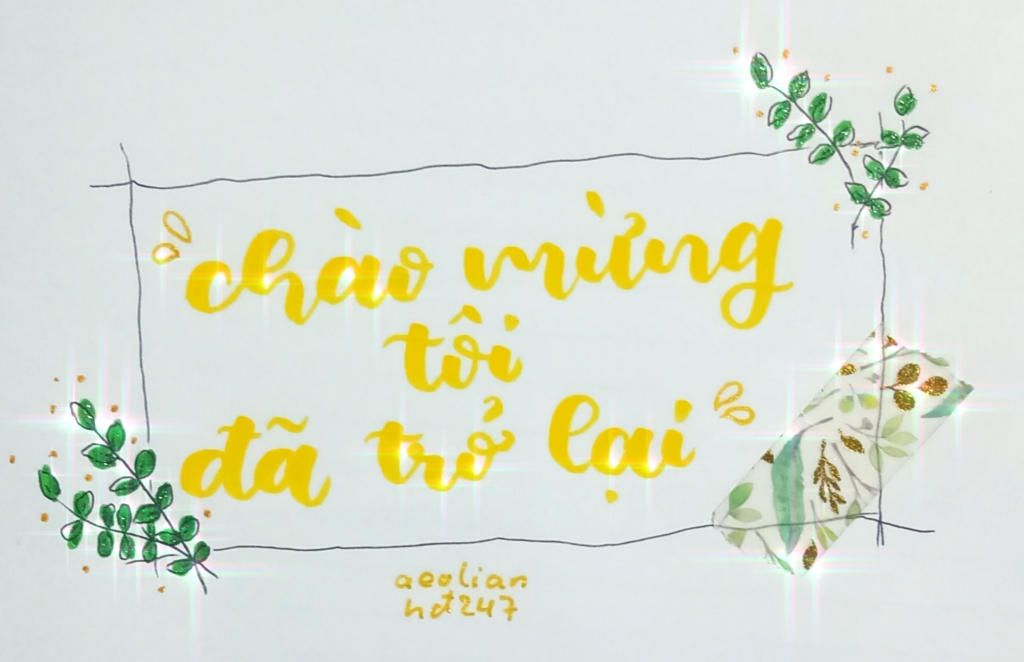 chào mừng
tôi
đã trở lại
aeolian
hđ247